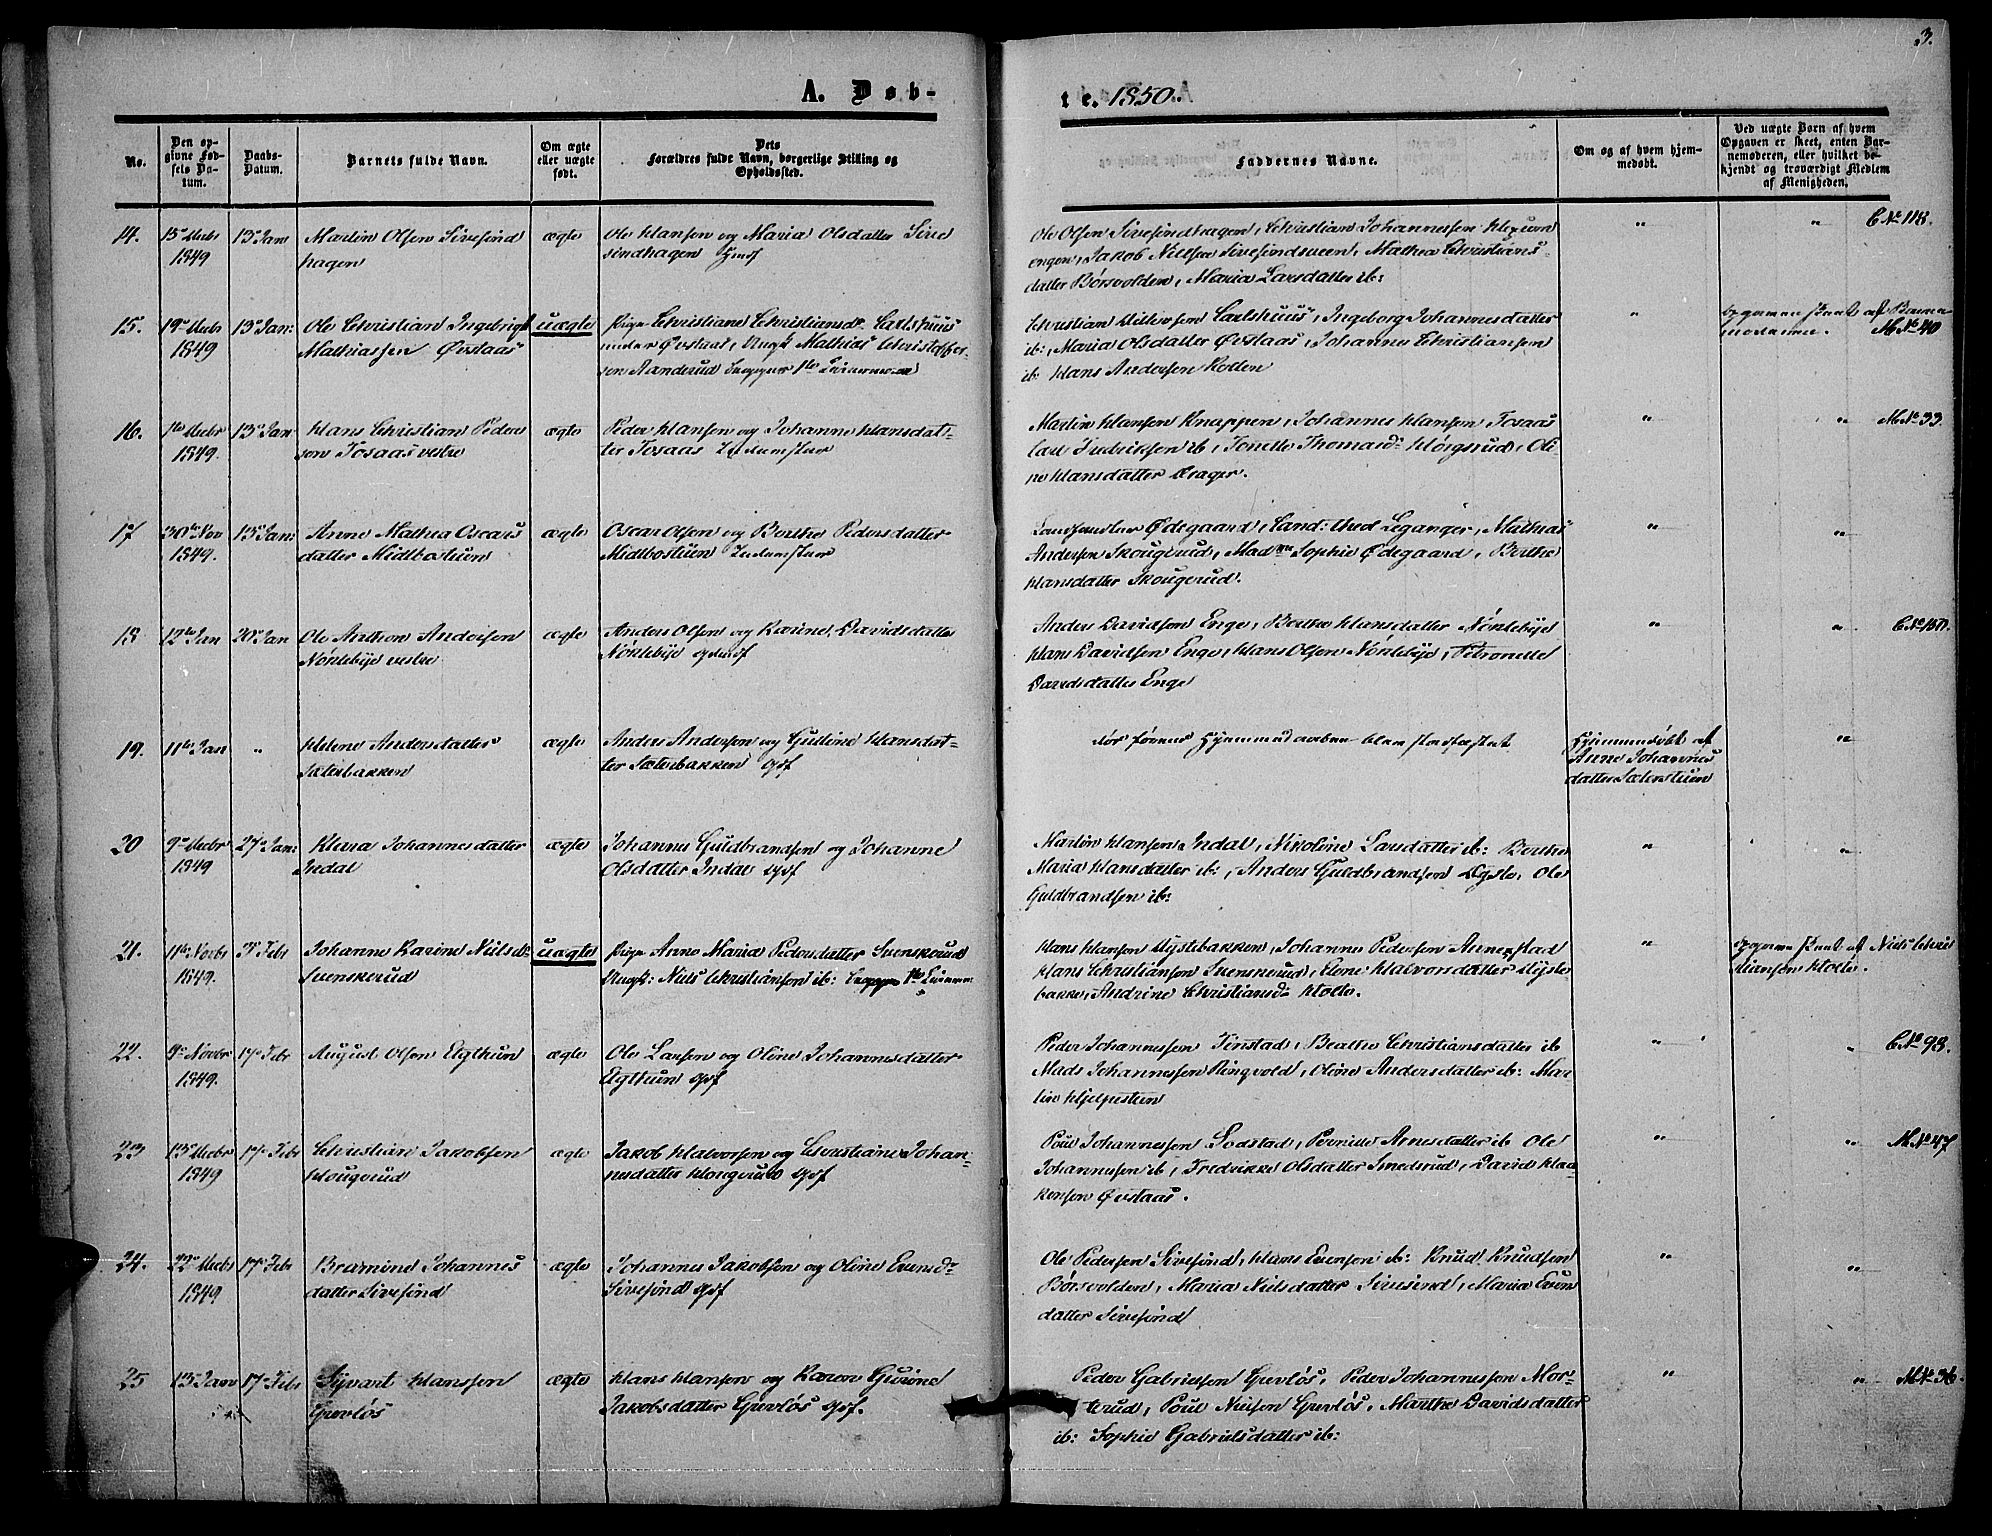 3.
A. Døb-
te. 1850.
No.
Den op-
givne Fød-
sels Da-
tum.
Daabs-
Datum.
Barnets fulde Navn.
Om ægte
eller uægte
født.
Dets
Forældres fulde Navn, borgerlige Stilling og
Opholdssted.
Faddernes Navne.
Om og af hvem hjem-
medøbt.
Ved uægte Børn af hvem
Opgaven er skeet, enten Bar-
nemoderen, eller hvilket be-
kjendt og troværdigt Medlem
af Menigheden.
14.
1849
13 Jan
Martin Olsen Sivesind
hagen
ægte
Ole Hansen og Maria Olsdatter Sive
sindhagen
Ole Olsen Sivesindhagen, Christian Johannessen
engen, Jakob Nillsen Sivesindsveen, Mathea Christians
datter Børsvolden, Maria Larsdatter ib:
"
"
C No 118.
15.
1849
13 Jan:
Ole Christian Ingebrigt
Mathiassen Øvstaas
uægte
Pige Christiane Christiansdr Carlshuus
under Øvstaas, Ungk Mathias Christoffer-
sen Aanderud
Christian Carlshuus, Ingeborg Johannesdatter
ib: Maria Olsdatter Øvstaas, Johannes Christiansen
ib: Hans Andersen Kollen
"
Opgaven skeet af Barne
moderen.
M No 40
16.
1849.
13 Jan
Hans Christian Peder
sen Fosaas vestre
ægte
Peder Hansen og Johanne Hansdat-
ter Fosaas
Martin Hansen Knappen, Johannes Hansen Fosaas
Carl Fredriksen ib, Tonette Thomasdr Oli
ne Hansdatter Krager.
"
"
M No 33
17
30te Nov
1849.
13 Jan:
Anne Mathea Oscars
datter Midlbøstuen
ægte
Oscar Olsen og Berthe Pedersdatter
Midlbøstuen
Ødegaard, Leganger, Mathias
Andersen Skougerud, Sophie Ødegaard, Berthe
Hansdatter Skougerud.
"
"
18
12te Jan
20 Jan
Ole Anthon Andersen
Nørlebye vestre
ægte
Anders Olsen og Karine Davidsdatter
Nørlebye
Anders Davidsen Enge, Berthe Hansdatter Nørlebye
Hans Davidsen Enge, Hans Olsen Nørlebye, Petronelle
Davidsdatter Enge
"
"
C No 150.
19.
11te Jan
"
Helene Andersdatter
Sæterbakken
ægte
Anders Andersen og Gulline Hansdat-
ter Sæterbakken
Død førend Hjemmedaaben blev stadfæstet
Hjemmedøbt af
Anne Johannes
datter Sæterstuen
"
20
1849
27 Jan:
Klara Johannesdatter
Indal
ægte
Johannes Guldbrandsen og Johanne
Olsdatter Indal
Martin Hansen Indal, Nikoline Larsdatter ib: Berthe
Maria Hansdatter ib:, Anders Guldbrandsen Ole
Guldbrandsen ib:
"
"
21.
11te Novbr
1849.
3 Febr
Johanne Karine Nilsdr
Svenskerud
uægte
Pige Anne Maria Pedersdatter Svenskerud
Ungk: Nils Christiansen ib:
Hans Hansen Nystebakken, Johannes Pedersen Annerstad
Hans Christiansen Svenskerud, Elene Halvorsdatter Nyste
bakke, Andrine Christiansdr Holte.
"
Opgaven skeet af Niels Chris
tiansen Holte.
22.
9 Novbr
1849.
17 Febr
August Olsen Egthun
ægte
Ole Larsen og Oline Johannesdatter
Egthun
Peder Johannessen Finstad, Beathe Christiansdatter ib
Mads Johannessen Ringvold, Oline Andersdatter ib: Mar
tin Hjelpesteen
"
"
C No 93.
23
1849
17 Febr
Christian Jakobsen
Hougerud
ægte
Jakob Halvorsen og Christiane Johan-
nesdatter Hougerud
Poul Johannessen Sodstad, Pernille Arnesdatter ib Ole
Johannessen ib, Fredrikke Olsdatter Smedsrud, David Haa
kensen Øvstaas.
"
"
M No 47
24.
1849
17 Febr
Bredmine Johannes
datter Sivesind
ægte
Johannes Jakobsen og Oline Evensdr
Sivesind
Ole Pedersen Sivesind, Hans Evensen ib: Knud Knudsen
Børsvolden, Maria Nilsdatter Sivesind, Maria Evens
datter Sivesind
"
"
25
13 Jan
17 Febr
Syvart Hanssen
Gievløs
ægte
Hans Hansen og Karen Gurine
Jakobsdatter Gievløs
Peder Gabrielsen Gievløs, Peder Johannessen Mor-
terud, Poul Nielsen Gievløs, Marthe Davidsdatter
ib: Sophie Gabrielsdatter ib:
"
"
M No 36.